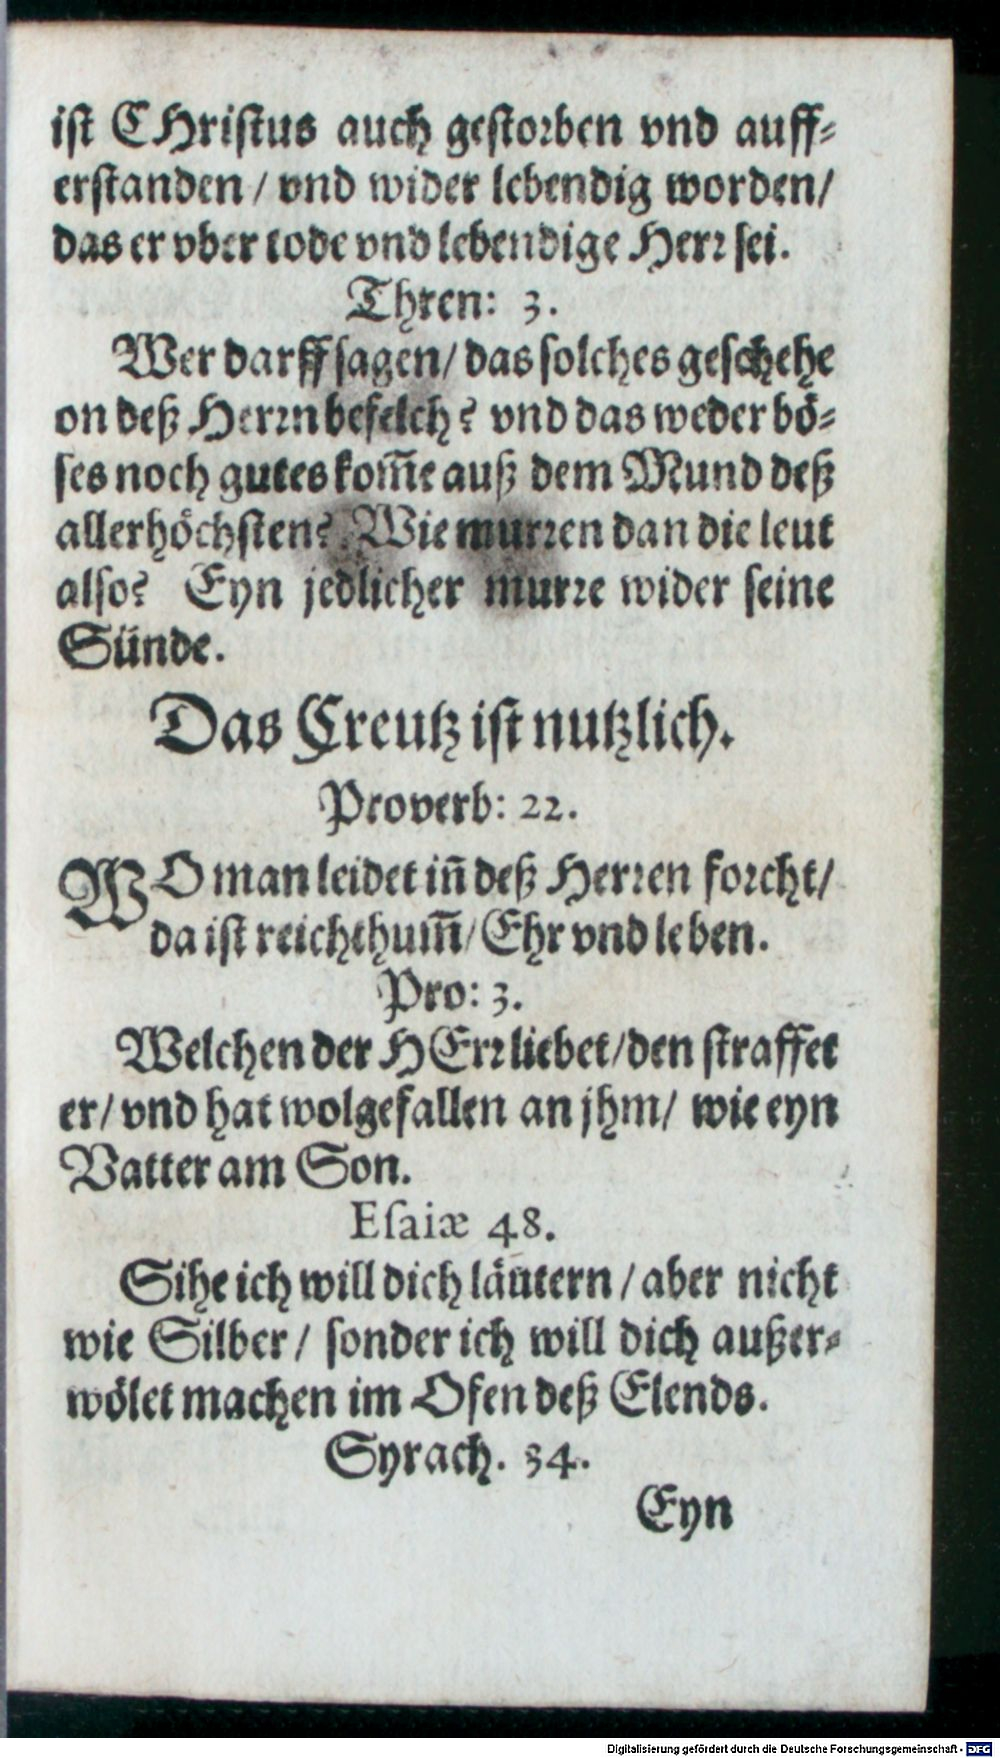 ist CHristus auch gestorben vnd auff⸗
erstanden / vnd wider lebendig worden/
das er vber tode vnd lebendige Herr sei.
Thren: 3.
Wer darff sagen/ das solches geschehe
on deß Herrn befelch? vnd das weder bö⸗
ses noch gutes kom̅e auß dem Mund deß
allerhöchsten? Wie murren dan die leut
also? Eyn jedlicher murre wider seine
Sünde.
Das Creutz ist nutzlich.
Proverb: 22.
WO man leidet in̅ deß Herren forcht/
da ist reichthum̅/ Ehr vnd leben.
Pro: 3.
Welchen der HErr liebet/den straffet
er/ vnd hat wolgefallen an jhm/ wie eyn
Vatter am Son.
Eſaiæ 48.
Sihe ich will dich läutern / aber nicht
wie Silber / sonder ich will dich außer⸗
wölet machen im Ofen deß Elends.
Syrach. 34.
Eyn
Digitalisierung gefördert durch die Deutsche Forschungsgemeinschaft - DFG